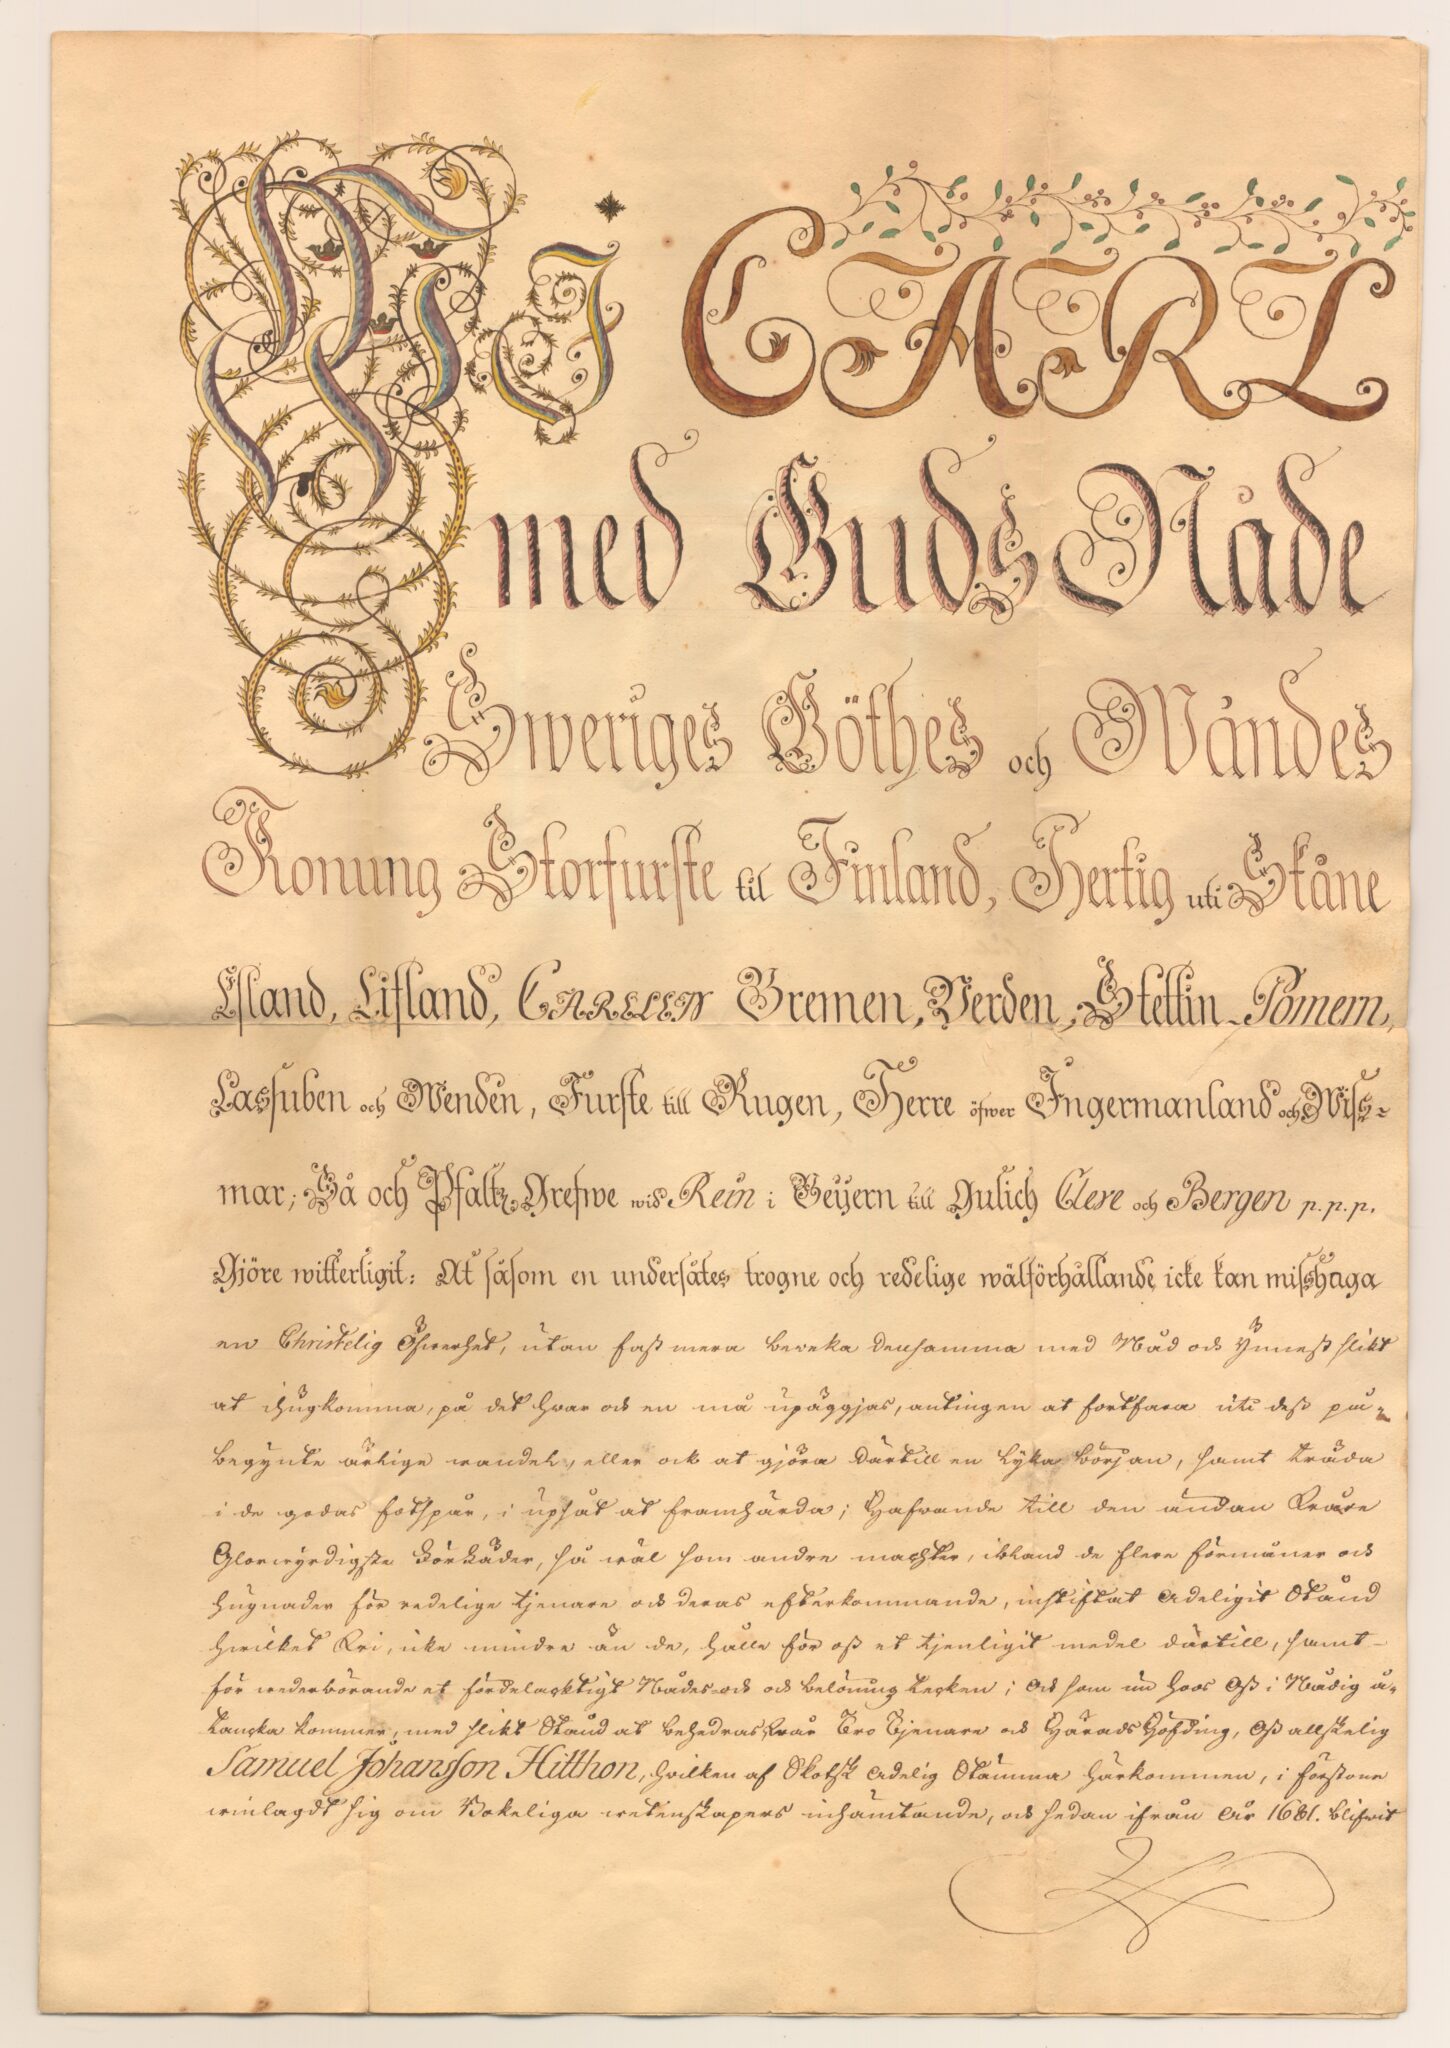 Wi CARL
med Guds Nåde
Sweriges Göthes och Wändes
Konung Storfurste til Finland, Hertig uti Skåne
Esland, Lifland, CARELEN Bremen, Verden, Stettin Pomern,
Cassuben och Wenden, Furste till Rugen, Herre öfwer Ingermanland och Wiss=
mar; Så och Pfaltz Grefwe wid Rein i Beyern till Gulich Cleve och Bergen p.p.p.
Gjöre witterligit: At såsom en undersåtes trogne och redelige wälförhållande icke kan misshaga
en Christelig Öfwerhet, utan fast mera beweka densamma med Nåd och Ynnest slikt
at ihugkomma, på det hwar och en må upäggjas, antingen at fortfara uti dess på=
begynte ärlige wandel, eller ock at gjöra därtill en lyka början, samt träda
i de godas fotspår, i upsåt at framhärda; Hafwande till den ändan Wåre
Glorwyrdigste Förfäder, så wäl som andre machter, ibland de flere förmåner och
hugnader för redelige tjenare och deras efterkommande, instiftat Adeligit Stånd
hwilket Wi, icke mindre än de, hålle för oss et tjenligit medel därtill, samt
för wederbörande et fördelacktigt Nådes och belöning tecken; Och som nu hoos Oss i Nådig å=
tancka kommer, med slikt Stånd at behedras Wår Tro Tjenare och Härads Höfding, Oss allskelig
Samuel Johansson Hitthon, hwilken af Skotsk Adelig Stamma härkommen, i förstone
winlagdt sig om Bokeliga wetenskapers inhämtande, och sedan ifrån År 1681. blifwit